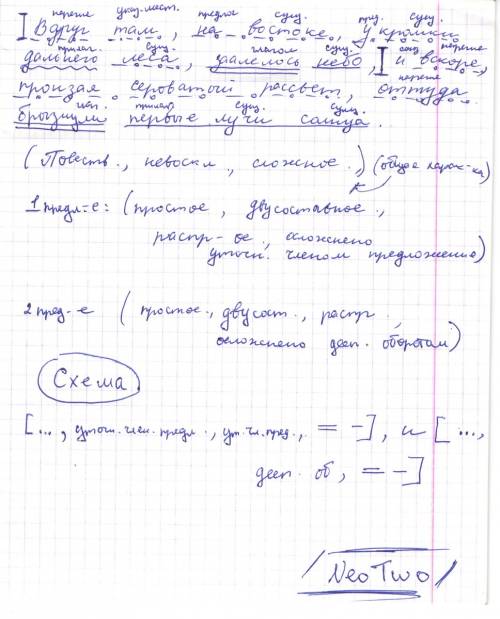 нареч. указ. мест. предлог сущ. пред. сущ.
Вдруг там, на востоке, у кромки
прилаг. сущ. глагол сущ. союз нареч
дальнего леса, заалелось небо, и вскоре,
нареч
пронзая сероватый рассвет, оттуда
прилаг. сущ. сущ.
брызнули первые лучи солнца.
(Повеств., невоскл., сложное.) (общее харак-ка)
1 предл-е: (простое, двусоставное,
распр-ое, осложнено
уточн. членом предложения)
2 пред-е (простое, двусост., распр.,
осложнено деепр. оборотом)
Схема
[..., уточн. член. предл., ут. чл. пред., = -], и [...,
дееп. об, = -]
NeoTwo